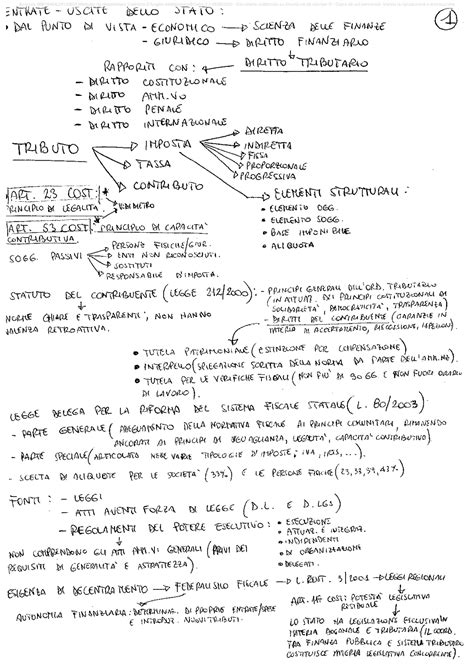 ENTRATE - USCITE DELLO STATO:
• DAL PUNTO DI VISTA - ECONOMICO → SCIENZA DELLE FINANZE
- GIURIDICO → DIRITTO FINANZIARIO
1
RAPPORTI CON: DIRITTO TRIBUTARIO
- DIRITTO COSTITUZIONALE
- DIRITTO AMM.VO
- DIRITTO PENALE
- DIRITTO INTERNAZIONALE
TRIBUTO → IMPOSTA → DIRETTA
→ INDIRETTA
→ FISSA
→ PROPORZIONALE
→ PROGRESSIVA
→ TASSA
→ CONTRIBUTO
→ ELEMENTI STRUTTURALI:
• ELEMENTO OGG.
• ELEMENTO SOGG.
• BASE IMPONIBILE
• ALIQUOTA
ART. 23 COST:
PRINCIPIO DI LEGALITÀ
ART. 53 COST: PRINCIPIO DI CAPACITÀ
CONTRIBUTIVA
SOGG. PASSIVI → PERSONE FISICHE/GIUR.
→ ENTI NON RICONOSCIUTI
→ SOSTITUTI
→ RESPONSABILE D'IMPOSTA.
STATUTO DEL CONTRIBUENTE (LEGGE 212/2000): - PRINCIPI GENERALI DELL'ORD. TRIBUTARIO
(IN ATTUAZ. DEI PRINCIPI COSTITUZIONALI DI
SOLIDARIETÀ, DEMOCRATICITÀ, TRASPARENZA)
- DIRITTI DEL CONTRIBUENTE (GARANZIE IN
MATERIA DI ACCERTAMENTO, RISCOSSIONE,
NORME CHIARE E TRASPARENTI, NON HANNO
VALENZA RETROATTIVA.
• TUTELA PATRIMONIALE (ESTINZIONE PER COMPENSAZIONE)
• INTERPELLO (SPIEGAZIONE SCRITTA DELLA NORMA DA PARTE DELL'AMM.NE)
• TUTELA PER LE VERIFICHE FISCALI (NON PIÙ DI 30 GG E NON FUORI ORARIO
DI LAVORO).
LEGGE DELEGA PER LA RIFORMA DEL SISTEMA FISCALE STATALE (L. 80/2003)
- PARTE GENERALE (ADEGUAMENTO DELLA NORMATIVA FISCALE AI PRINCIPI COMUNITARI, RIMANENDO
ANCORATI AI PRINCIPI DI UGUAGLIANZA, LEGALITÀ, CAPACITÀ CONTRIBUTIVA)
- PARTE SPECIALE (ARTICOLATO NELLE VARIE TIPOLOGIE D'IMPOSTE, IVA, IRES, ...)
- SCELTA DI ALIQUOTE PER LE SOCIETÀ (33%) E LE PERSONE FISICHE (23, 33, 39, 43%)
FONTI: - LEGGI
- ATTI AVENTI FORZA DI LEGGE (D.L. E D.LGS)
- REGOLAMENTI DEL POTERE ESECUTIVO: • ESECUZIONE
• ATTUAZ. E INTEGRAZ.
• INDIPENDENTI
• DI ORGANIZZAZIONI
• DELEGATI.
NON COMPRENDONO GLI ATTI AMM.VI GENERALI (PRIVI DEI
REQUISITI DI GENERALITÀ E ASTRATTEZZA).
ESIGENZA DI DECENTRAMENTO → FEDERALISMO FISCALE → L. COST. 3/2001 → LEGGI REGIONALI
AUTONOMIA FINANZIARIA: DETERMINAZ. DI PROPRIE ENTRATE/SPESE
E INTRODUZ. NUOVI TRIBUTI.
ART. 117 COST: POTESTÀ LEGISLATIVA
RESIDUALE
LO STATO HA LEGISLAZIONE ESCLUSIVA IN
MATERIA DOGANALE E TRIBUTARIA (IL COORD.
TRA FINANZA PUBBLICA E SISTEMA TRIBUTARIO
COSTITUISCE MATERIA LEGISLATIVA CONCORRENTE).